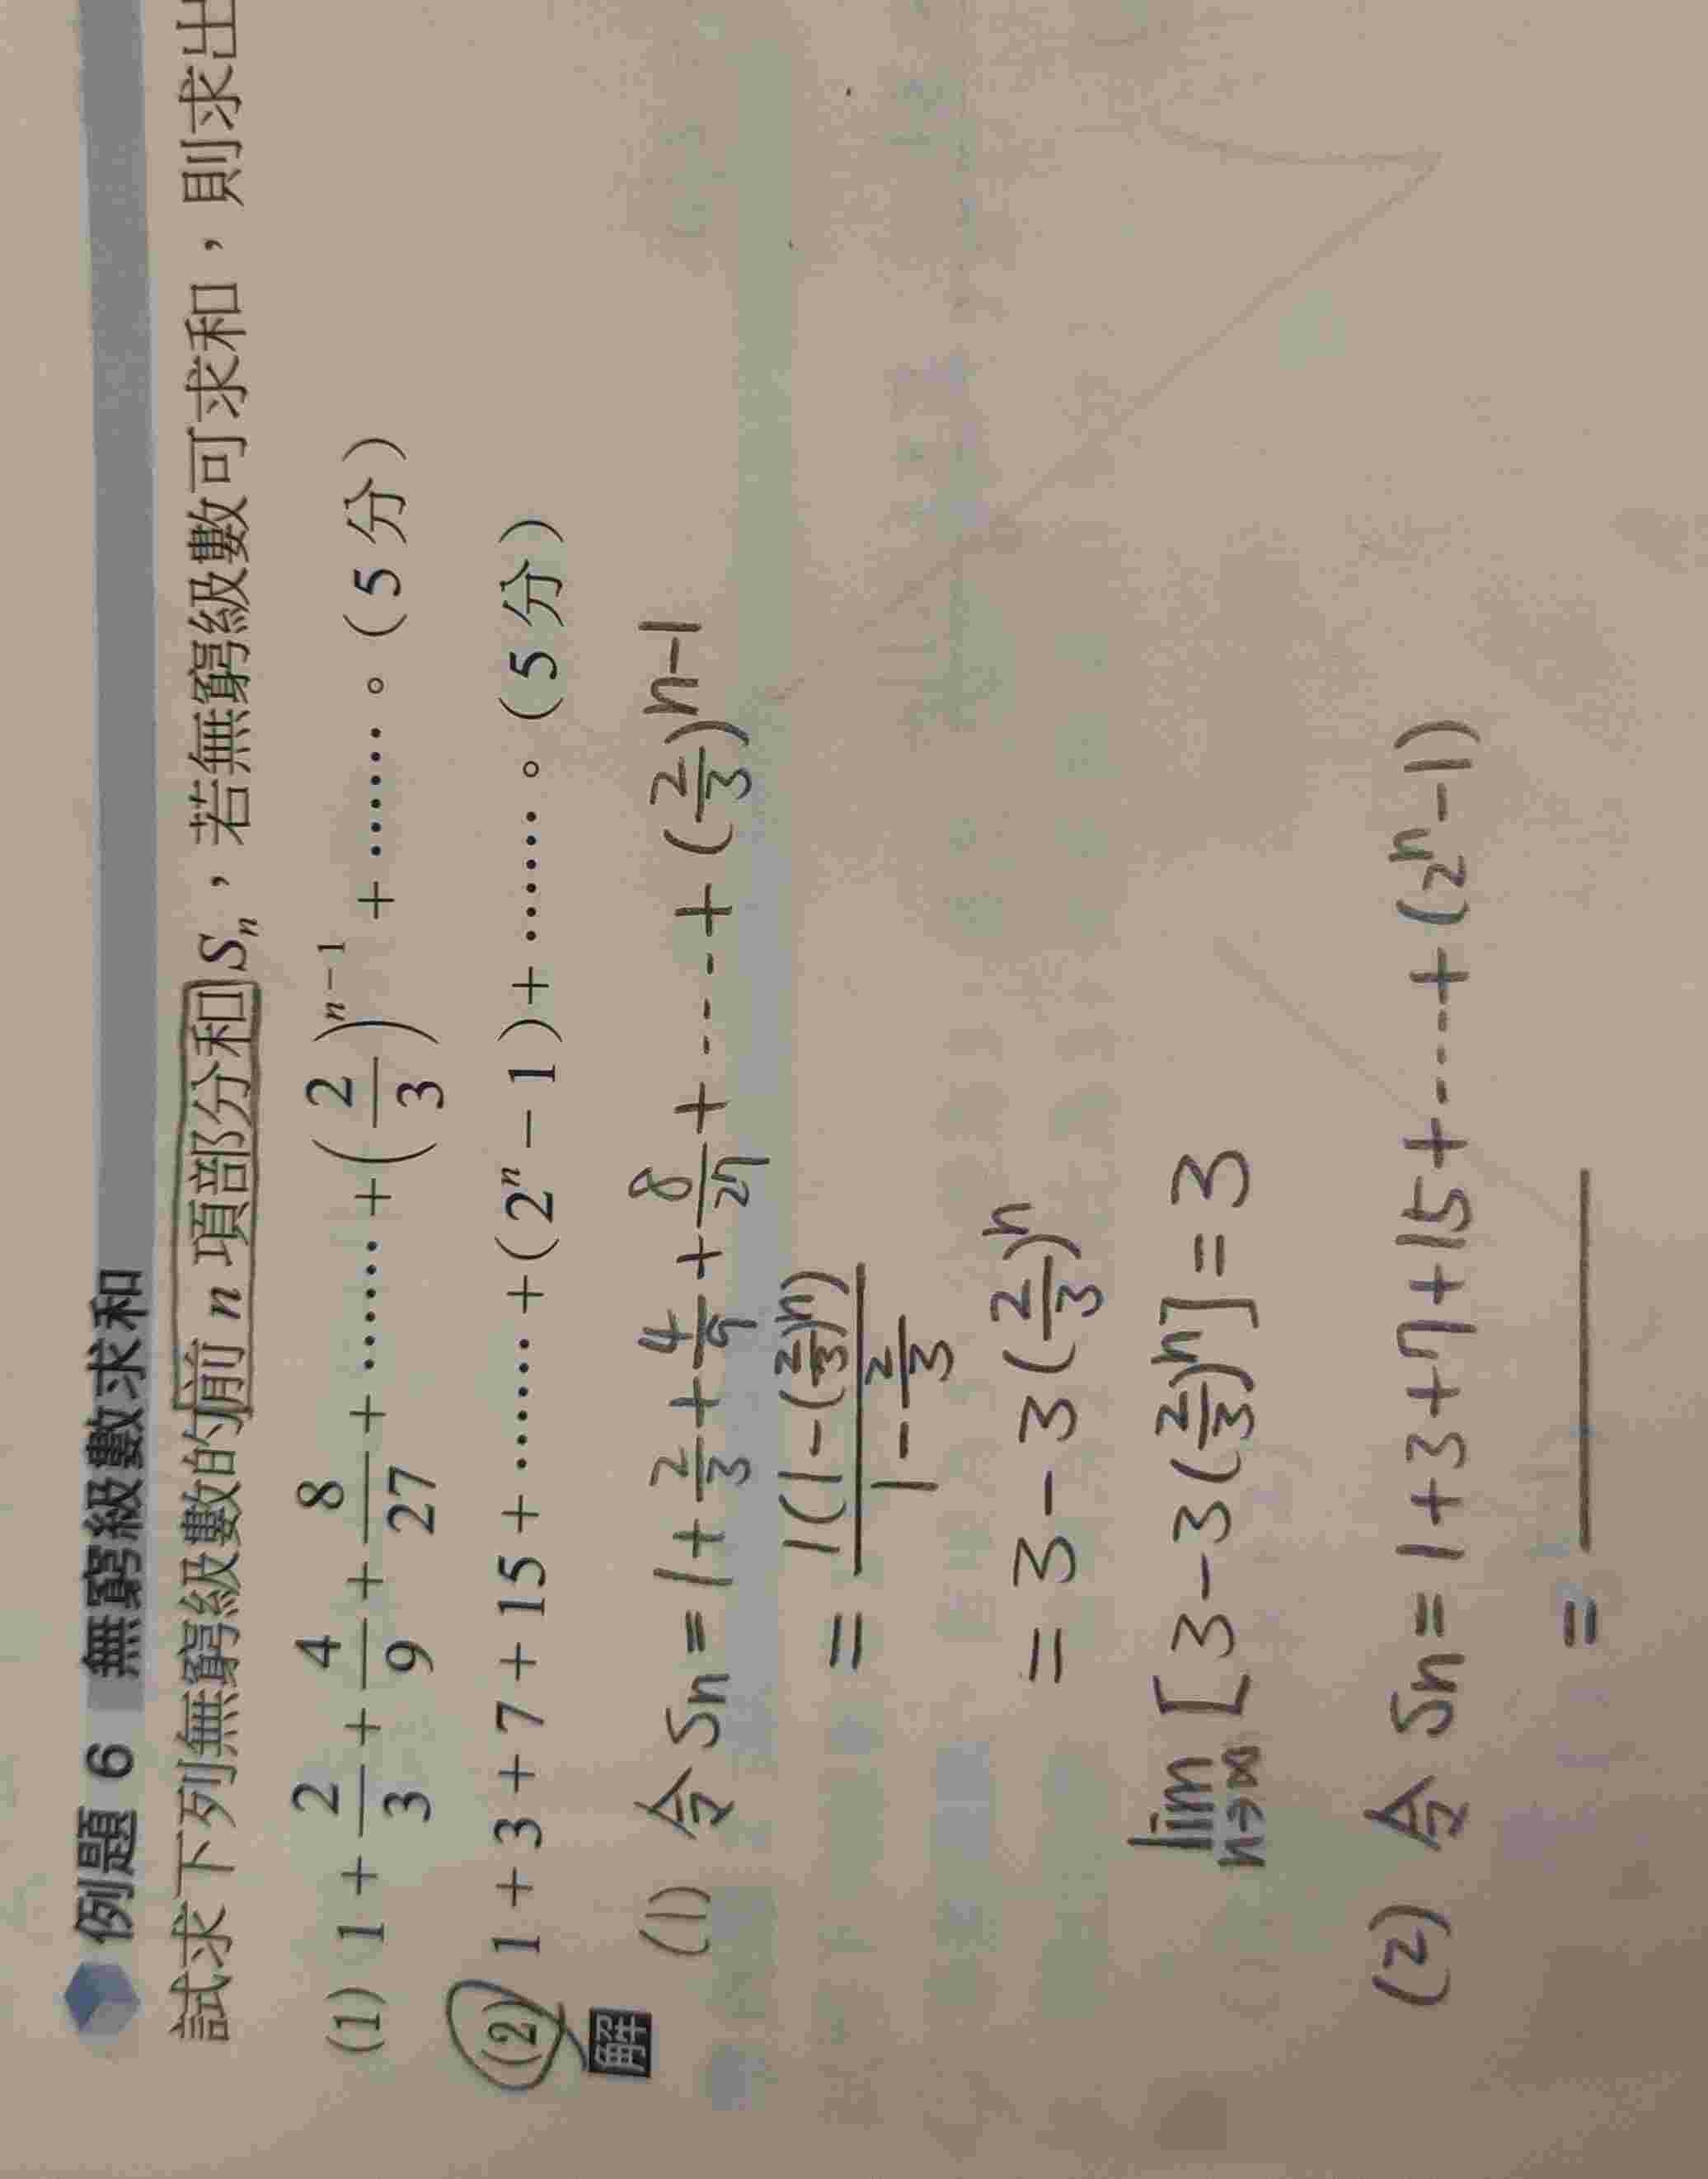 例題 6 無窮級數求和
試求下列無窮級數的前 n 項部分和 Sₙ，若無窮級數可求和，則求出
(1) 1 + 2/3 + 4/9 + 8/27 + …… + (2/3)ⁿ⁻¹ + ……。（5 分）
(2) 1 + 3 + 7 + 15 + …… + (2ⁿ − 1) + ……。（5 分）
解
(1) 令 Sn = 1 + 2/3 + 4/9 + 8/27 + ---- + (2/3)ⁿ⁻¹
= 1(1 − (2/3)ⁿ) / 1 − 2/3
= 3 − 3(2/3)ⁿ
lim n→∞ [3 − 3(2/3)ⁿ] = 3
(2) 令 Sn = 1 + 3 + 7 + 15 + ---- + (2ⁿ − 1)
=